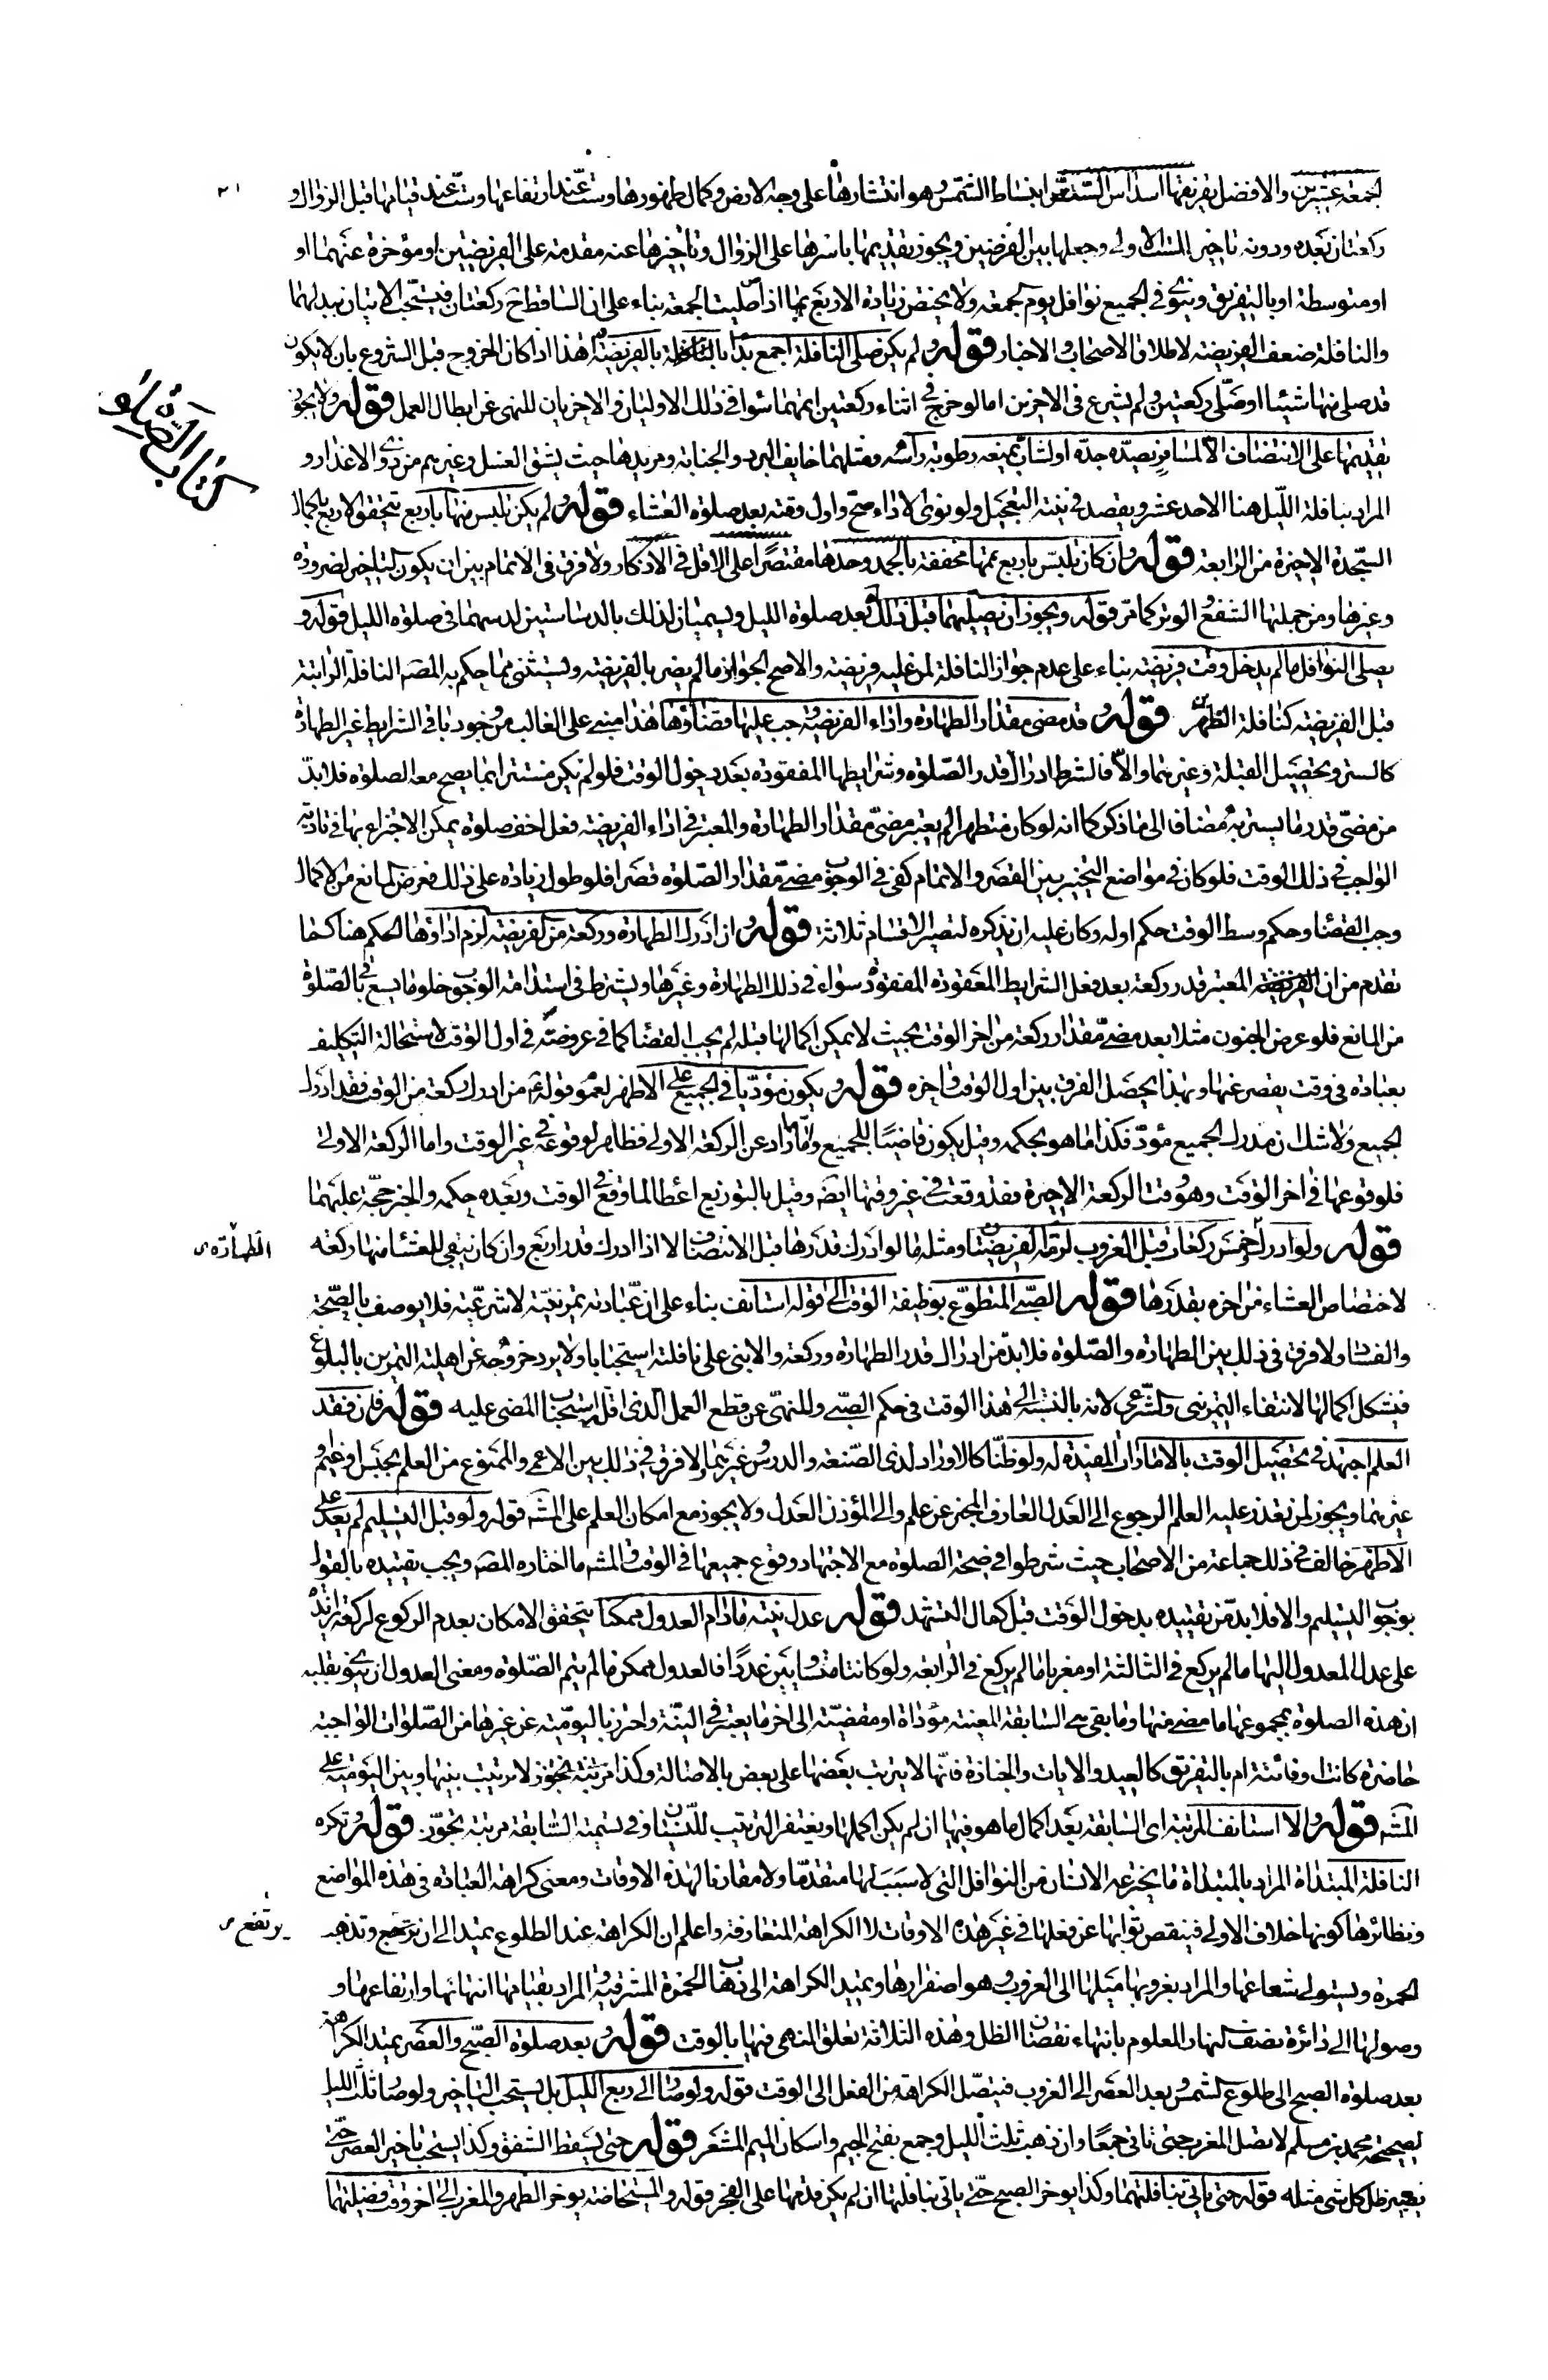 الجمعة عشرين والافضل تفريقها اسداس الستة عند انبساط الشمس وهو انتشارها على وجه الارض وكمال ظهورها وست عند ارتفاعها وست عند قيامها قبل الزوال و
ركعتان بعده ودونه تاخير الست الاولى وجعلها بين الفرضين ويجوز تقديمها باسرها على الزوال وتاخيرها عنه مقدمة على الفريضتين او مؤخرة عنهما او
او متوسطة او بالتفريق وينوى في الجميع نوافل يوم الجمعة ولا يختص زيادة الاربع بما اذا صليت الجمعة بناء على ان الساقط ح ركعتان فيستحب الاتيان ببدلهما
والنافلة ضعف الفريضة لاطلاق الاصحاب والاخبار قوله ولم يكن صلى النافلة اجمع بدا بالفريضة هذا اذا كان الخروج قبل الشروع بان لا يكون
قد صلى منها شيئا او صلى ركعتين ولم يشرع في الاخرين اما لو خرج في اثناء ركعتين اتمهما سواء في ذلك الاوليان والاخريان للنهى عن ابطال العمل قوله ولا يجوز
تقديمها على الانتصاف الا لمسافر يصده جده او لشاب يمنعه رطوبة راسه ومثلهما خايف البرد والجنابة ومريدها حيث يشق الغسل وغيرهم من ذوى الاعذار و
المراد بنافلة الليل هنا الاحد عشر ويقصد في نيته التعجيل ولو نوى الاداء صح واول وقته بعد صلوة العشاء قوله ولم يكن تلبس منها باربع يتحقق الاربع باكمال
السجدة الاخيرة من الرابعة قوله وان كان تلبس باربع تمها مخففة بالحمد وحدها مقتصرا على الاقل في الاذكار ولا فرق في الاتمام بين ان يكون التاخير لضرورة
وغيرها ومن جملتها الشفع والوتر كما مر قوله ويجوز ان يصليهما قبل ذلك بعد صلوة الليل ويسميان لذلك بالدساستين لدسهما في صلوة الليل قوله و
يصلى النوافل ما لم يدخل وقت فريضة بناء على عدم جواز النافلة لمن عليه فريضة والاصح الجواز ما لم يضر بالفريضة ويستثنى مما حكم به المصه النافلة الراتبة
قبل الفريضة كنافلة الظهرين قوله وقد مضى مقدار الطهارة واداء الفريضة وجب عليها قضاؤها هذا مبنى على الغالب من وجود باقى الشرايط غير الطهارة
كالستر وتحصيل القبلة وغيرهما والا فالشرط ادراك قدر الصلوة وشرايطها المفقودة بعد دخول الوقت فلو لم يكن مستترا بما يصح معه الصلوة فلا بد
من مضى قدر ما يستر به مضافا الى ما ذكر كما انه لو كان متطهرا لم يعتبر مضى مقدار الطهارة والمعتبر في اداء الفريضة فعل اخف صلوة يمكن الاجتزاء بها في تادية
الواجب في ذلك الوقت فلو كان في مواضع التخيير بين القصر والاتمام كفى في الوجوب مضى مقدار الصلوة قصرا فلو طول زيادة على ذلك فعرض المانع من الاكمال
وجب القضاء وحكم وسط الوقت حكم اوله وكان عليه ان يذكره لتصير الاقسام ثلاثة قوله وان ادرك الطهارة وركعة من الفريضة لزم اداؤها الحكم هنا كما
تقدم من ان المعتبر قدر ركعة بعد فعل الشرايط المفقودة سواء في ذلك الطهارة وغيرها ويشترط في استدامة الوجوب خلو ما يسع باقى الصلوة
من المانع فلو عرض الجنون مثلا بعد مضى مقدار ركعة من اخر الوقت بحيث لا يمكن اكمالها قبله لم يجب القضاء كما في عروضه في اول الوقت لاستحالة التكليف
بعبادة في وقت يقصر عنها وبهذا يحصل الفرق بين اول الوقت واخره قوله ويكون مؤديا في الجميع على الاظهر لعموم قوله ع من ادرك ركعة من الوقت فقد ادرك
الجميع ولا شك ان مدرك الجميع مؤد فكذا ما هو بحكمه وقيل يكون قاضيا للجميع واما ما زاد عن الركعة الاولى فظاهر لوقوعه في غير الوقت واما الركعة الاولى
فلوقوعها في اخر الوقت وهو وقت الركعة الاخيرة فقد وقعت في غير وقتها ايضا وقيل بالتوزيع اعطاء لما وقع في الوقت وبعده حكمه والخبر حجة عليهما
قوله ولو ادرك خمس ركعات قبل الغروب لزمه الفريضتان ومثله ما لو ادرك قدرها قبل الانتصاف لا اذا ادرك قدر اربع وان كان يبقى للعشاء منها ركعة
لاختصاص العشاء من اخره بقدرها قوله الصبي المتطوع بوظيفة الوقت الى قوله استانف بناء على ان عبادته تمرينية لا شرعية فلا يوصف بالصحة
والفساد ولا فرق في ذلك بين الطهارة والصلوة فلا بد من ادراك قدر الطهارة وركعة والا بنى على نافلته استحبابا ولا يرد خروجه عن اهلية التمرين بالبلوغ
فيشكل اكمالها لانتفاء التمرينى والشرعى لانه بالنسبة الى هذا الوقت في حكم الصبي وللنهى عن قطع العمل الذى اقله استحباب المضى عليه قوله فان فقد
العلم اجتهد في تحصيل الوقت بالامارات المفيدة له ولو ظنا كالاوراد لذى الصنعة والدروس وغيرهما ولا فرق في ذلك بين الاعمى والممنوع من العلم بحبس او غيم و
غيرهما ويجوز لمن تعذر عليه العلم الرجوع الى العدل العارف المخبر عن علم والى المؤذن العدل ولا يجوز مع امكان العلم على المشه قوله ولو قبل التسليم لم يعد على
الاظهر خالف في ذلك جماعة من الاصحاب حيث شرطوا في صحة الصلوة مع الاجتهاد وقوع جميعها في الوقت والمشه ما اختاره المصه ويجب تقييده بالقول
بوجوب التسليم والا فلا بد من تقييده بدخول الوقت قبل كمال التشهد قوله عدل نيته مادام العدول ممكنا يتحقق الامكان بعدم الركوع لركعة زائدة
على عدد المعدول اليها ما لم يركع في الثالثة او مغربا ما لم يركع في الرابعة ولو كانتا متساويتين عددا فالعدول ممكن ما لم يتم الصلوة ومعنى العدول ان ينوى بقلبه
ان هذه الصلوة بمجموعها ما مضى منها وما بقى هي السابقة المعينة مؤداة او مقضية الى اخر ما يعتبر في النية واحترز باليومية عن غيرها من الصلوات الواجبة
حاضرة كانت او فائتة ام بالتفريق كالعيد والايات والجنازة فانها لا يترتب بعضها على بعض بالاصالة وكذا مرتبة تجوز لا ترتيب بينها وبين اليومية على
المشه قوله والا استانف المرتبة اى السابقة بعد اكمال ما هو فيها ان لم يكن اكملها ويغتفر الترتيب للنسيان وفي تسمية السابقة مرتبة تجوز قوله وتكره
النافلة المبتداة المراد بالمبتداة ما يخترعه الانسان من النوافل التى لا سبب لها متقدما ولا مقارنا لهذه الاوقات ومعنى كراهة العبادة في هذه المواضع
ونظائرها كونها خلاف الاولى فينقص ثوابها عن فعلها في غير هذه الاوقات لا الكراهة المتعارفة واعلم ان الكراهة عند الطلوع يمتد الى ان ترتفع وتذهب
الحمرة ويستولى شعاعها والمراد بغروبها ميلها الى الغروب وهو اصفرارها ويمتد الكراهة الى ذهاب الحمرة المشرقية والمراد بقيامها انتهائها وارتفاعها و
وصولها الى دائرة نصف النهار المعلوم بانتهاء نقصان الظل وهذه الثلاثة تعلق النهى فيها بالوقت قوله وبعد صلوة الصبح والعصر يمتد الكراهة
بعد صلوة الصبح الى طلوع الشمس وبعد العصر الى الغروب فيتصل الكراهة من الفعل الى الوقت قوله ولو صار الى ربع الليل بل يستحب التاخير ولو صار ثلث الليل
لصحيحة محمد بن مسلم لا تصل المغرب حتى تاتى جمعا وان ذهب ثلث الليل وجمع بفتح الجيم واسكان الميم المشعر قوله حتى يسقط الشفق وكذا يستحب تاخير العصر حتى
يصير ظل كل شئ مثله قوله حتى ياتى بنافلتهما وكذا يوخر الصبح حتى ياتى بنافلتها ان لم يكن قدمها على الفجر قوله والمستحاضة يوخر الظهر والمغرب الى اخر وقت فضيلتهما
كتاب الصلوة
الطهارة ى
يرتفع ى
٢١